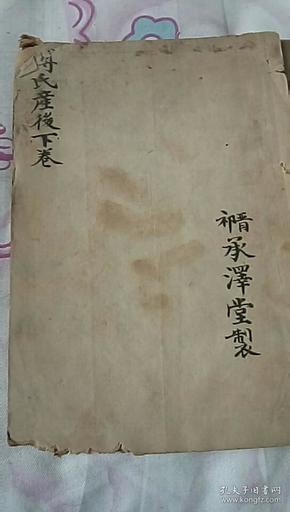 傅氏產後下卷
承澤堂製
孔夫子旧书网
kongfz.com